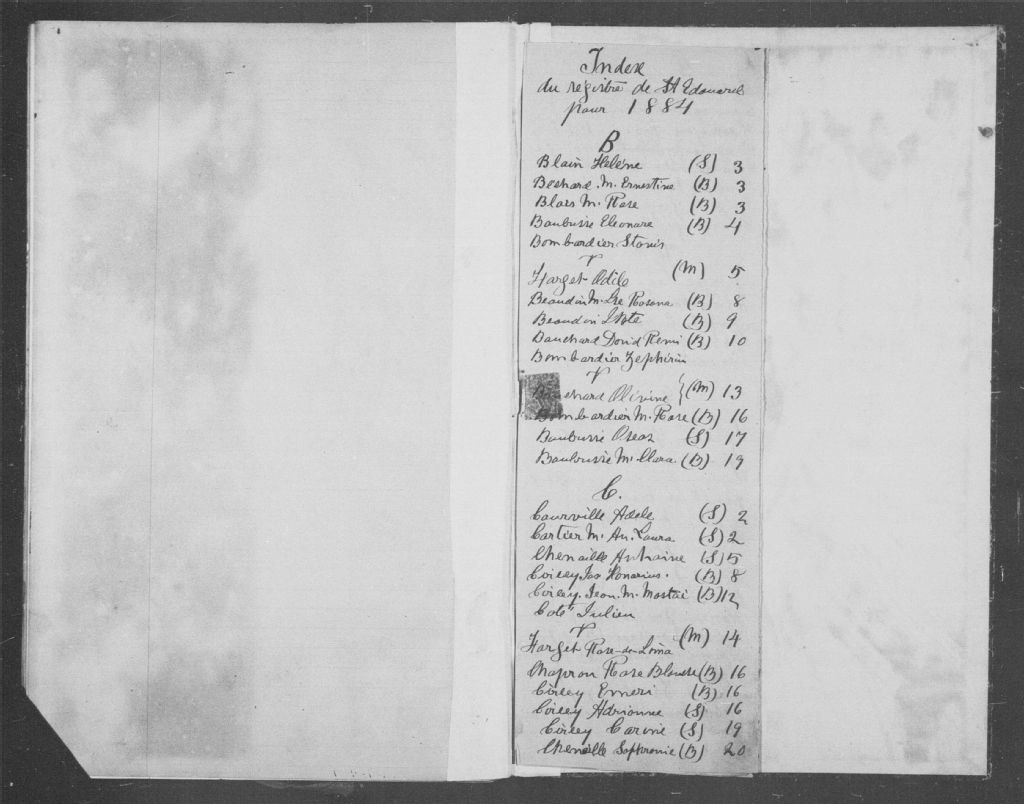 Index
du régistre de St Edouard
pour 1884
B
Blain Heléne (S) 3
Bechard M. Ernestine (B) 3
Blais M. Rose (B) 3
Baubusie Eleonare (B) 4
Bombardier Stanis
&
Forget Odile (M) 5
Beaudin M. Lse Rosana (B) 8
Beaudin (B) 9
Bouchard David Remi (B) 10
Bombardier Zephirin
&
Bouchard Olivine (M) 13
Bombardier M. Rose (B) 16
Baubusie Oscar (S) 17
Baubusie M. Clara (B) 19
C.
Courville Adele (S) 2
Cartier M. An. Laura (S) 2
Chenaille Antoine (S) 5
Coiley Jos Honorius. (B) 8
Coiley Jean. M. (B) 12
Coté Julien
&
Forget Rose-de-Lima (M) 14
Chapron Rose Blanche (B) 16
Coiley Emeri (B) 16
Coiley Adrionne (S) 16
Coiley Carine (S) 19
Chenaille Sophronie (B) 20